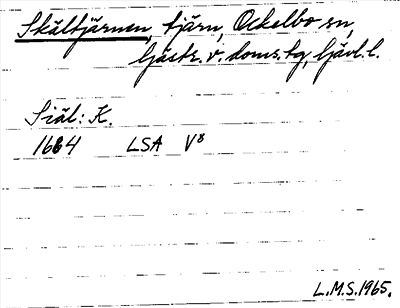 Skältjärnen, tjärn, Ockelbo sn,
Gästr. v. doms.tg, Gävl. l.
Siäl: K.
1664 LSA V8
L.M.S. 1965.